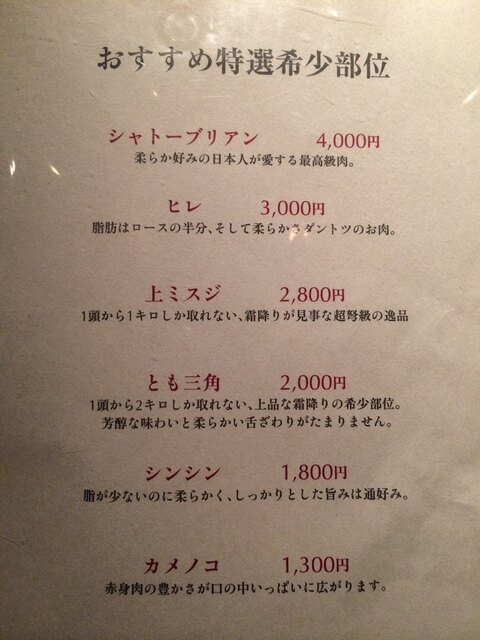 おすすめ特選希少部位
シャトーブリアン 4,000円
柔らか好みの日本人が愛する最高級肉。
ヒレ 3,000円
脂肪はロースの半分、そして柔らかさダントツのお肉。
上ミスジ 2,800円
1頭から1キロしか取れない、霜降りが見事な超弩級の逸品
とも三角 2,000円
1頭から2キロしか取れない、上品な霜降りの希少部位。
芳醇な味わいと柔らかい舌ざわりがたまりません。
シンシン 1,800円
脂が少ないのに柔らかく、しっかりとした旨みは通好み。
カメノコ 1,300円
赤身肉の豊かさが口の中いっぱいに広がります。